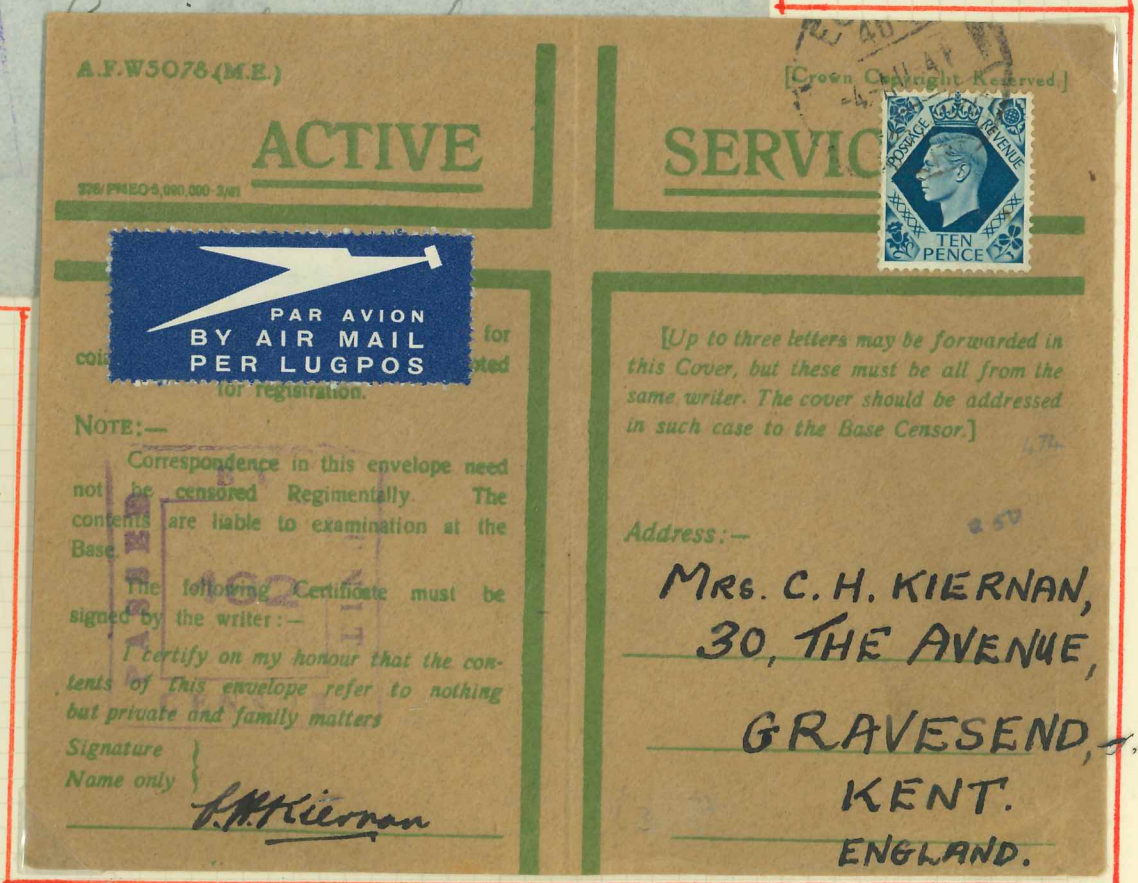 A.F.W5078.(M.E.)
[Crown Copyright Reserved.]
ACTIVE
SERVIC
POSTAGE REVENUE
TEN
PENCE
PAR AVION
BY AIR MAIL
PER LUGPOS
for
for registration.
NOTE:—
Correspondence in this envelope need
not be censored Regimentally. The
contents are liable to examination at the
Base.
The following Certificate must be
signed by the writer:—
I certify on my honour that the con-
tents of this envelope refer to nothing
but private and family matters
Signature
Name only
Kiernan
PASSED
BY
UNIT
CENSOR
[Up to three letters may be forwarded in
this Cover, but these must be all from the
same writer. The cover should be addressed
in such case to the Base Censor.]
Address:—
MRS. C. H. KIERNAN,
30, THE AVENUE,
GRAVESEND,
KENT.
ENGLAND.